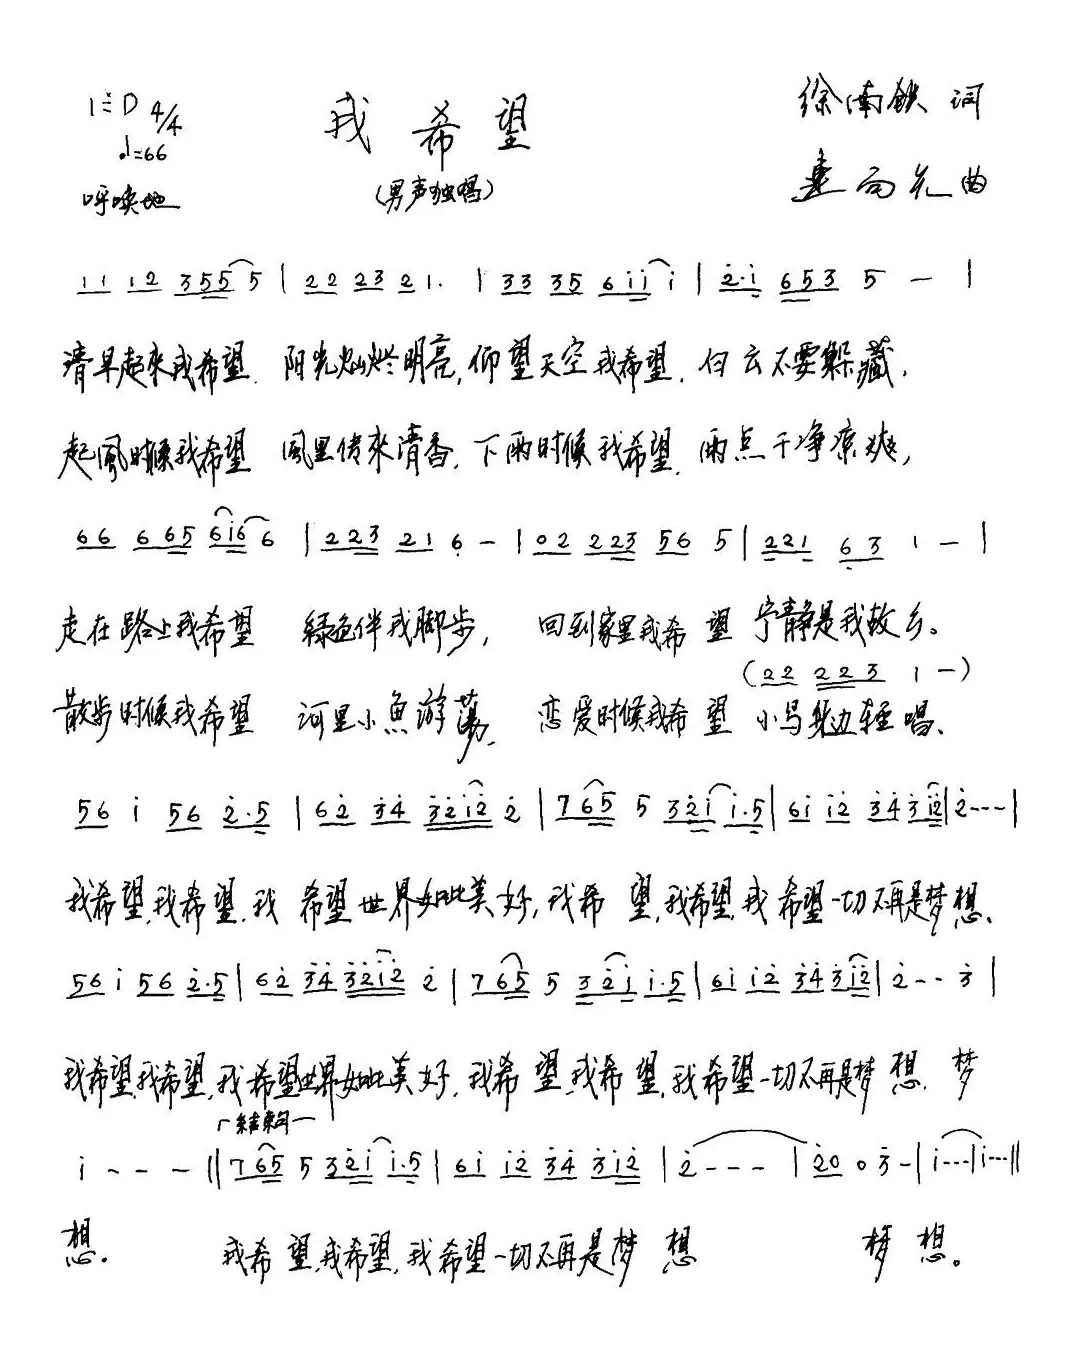 1=D 4/4
我希望
徐南铁 词
♩=66
呼唤地
(男声独唱)
曲
11 12 355 5 | 22 23 21. | 33 35 6i̇i̇ i̇ | 2̇.i̇ 653 5 — |
清早起來我希望. 阳光灿烂明亮,仰望天空我希望. 白云不要躲藏.
起風时候我希望 風里传來清香. 下雨时候我希望. 雨点干净凉爽,
66 665 6i̇6 6 | 223 21 6̣ — | 02 223 56 5 | 221 6̣3 1 — |
走在路上我希望 绿色伴我脚步, 回到家里我希望 宁静是我故乡。
(22 223 1 —)
散步时候我希望 河里小魚游荡, 恋爱时候我希望 小鸟身边轻唱、
56 i̇ 56 2̇.5 | 62̇ 3̇4̇ 3̇2̇i̇2̇ 2̇ | 765 5 32̇i̇ i̇.5 | 6i̇ i̇2̇ 3̇4̇ 3̇i̇2̇ | 2̇--- |
我希望,我希望,我希望世界如此美好,我希望,我希望,我希望一切不再是梦想、
56 i̇ 56 2̇.5 | 62̇ 3̇4̇ 3̇2̇i̇2̇ 2̇ | 765 5 32̇i̇ i̇.5 | 6i̇ i̇2̇ 3̇4̇ 3̇i̇2̇ | 2̇-- 3̇ |
我希望,我希望,我希望世界如此美好,我希望,我希望,我希望一切不再是梦想. 梦
结束句
i̇--- || 765 5 32̇i̇ i̇.5 | 6i̇ i̇2̇ 3̇4̇ 3̇i̇2̇ | 2̇--- | 2̇0 0 3̇- | i̇--- | i̇--- ||
想. 我希望,我希望,我希望一切不再是梦想 梦想。